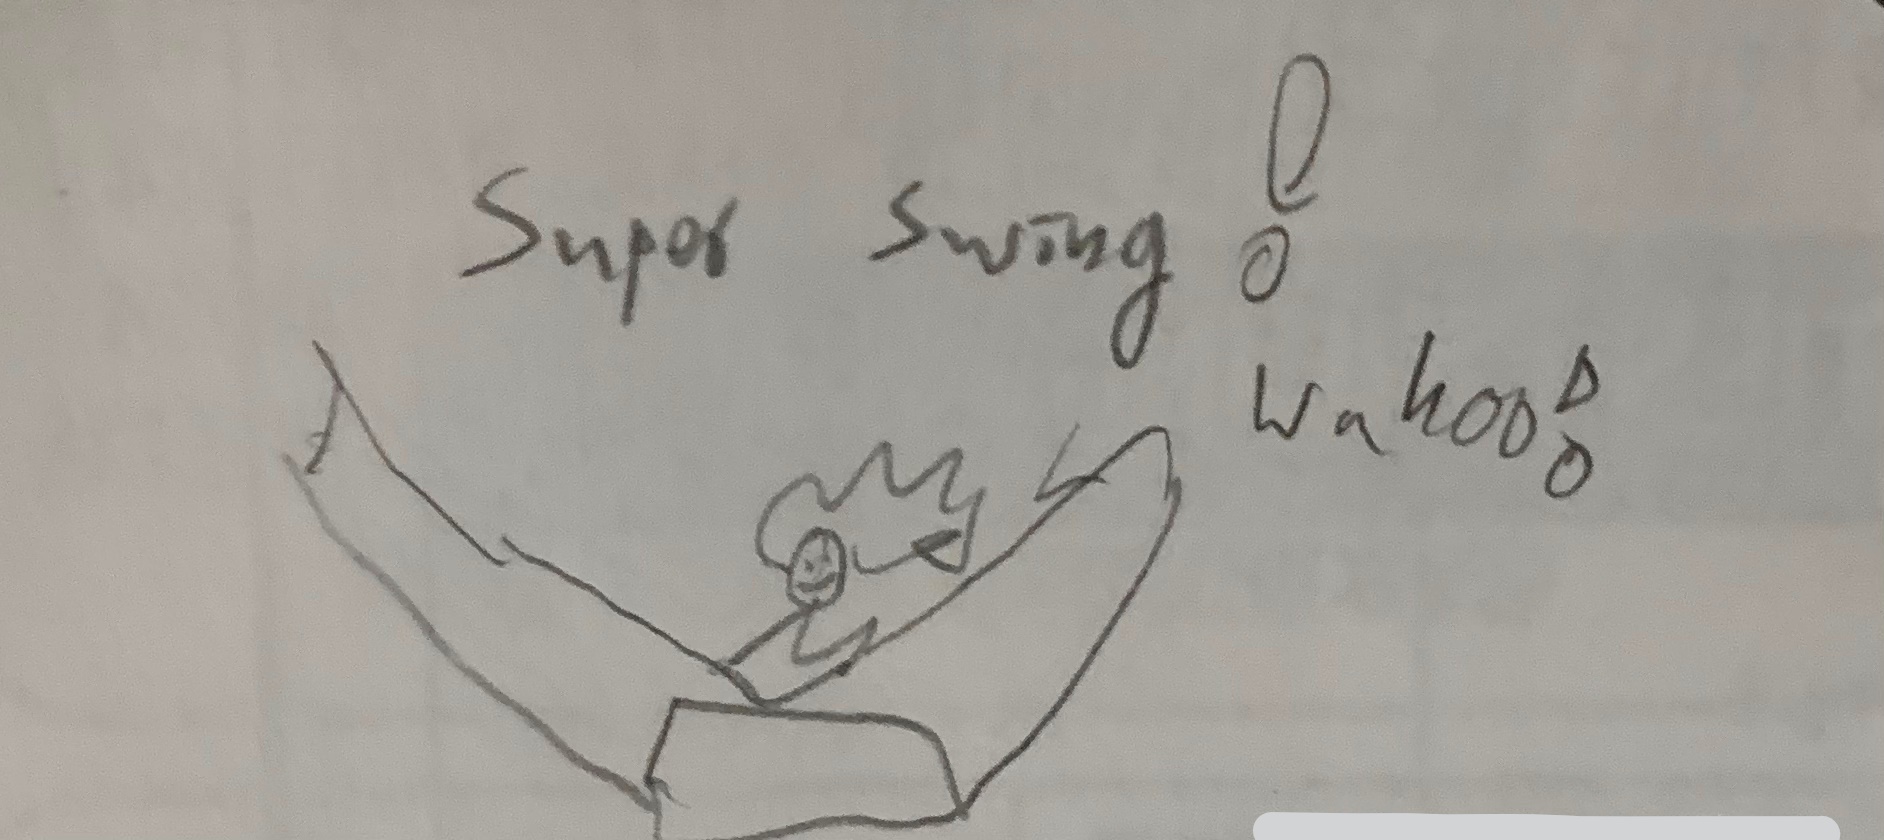 Super Swing!
Wahoo!